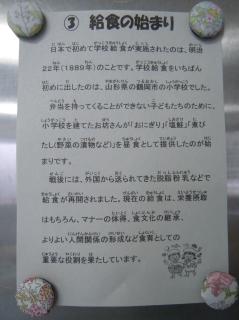 ③ 給食の始まり
日本で初めて学校給食が実施されたのは、明治
22年(1889年)のことです。学校給食をいちばん
初めに出したのは、山形県の鶴岡市の小学校でした。
弁当を持ってくることができない子どもたちのために、
小学校を建てたお坊さんが「おにぎり」「塩鮭」「煮び
たし(野菜の漬物など)」を昼食として提供したのが始
まりです。
戦後には、外国から送られてきた脱脂粉乳などで
給食が再開されました。現在の給食は、栄養摂取
はもちろん、マナーの体得、食文化の継承、
よりよい人間関係の形成など食育としての
重要な役割を果たしています。